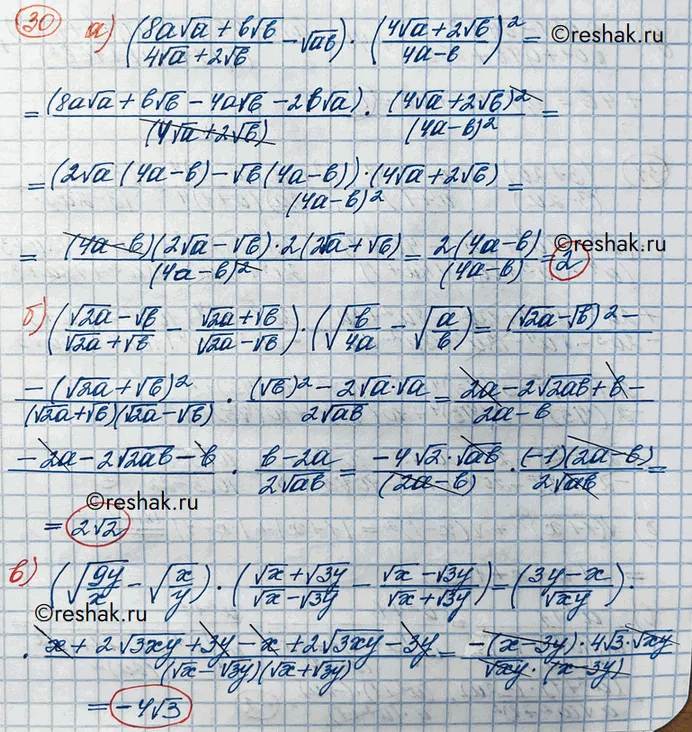 30 а) ((8a√a + b√b)/(4√a + 2√b) − √ab) · ((4√a + 2√b)/(4a − b))² = ©reshak.ru
= (8a√a + b√b − 4a√b − 2b√a)/(4√a + 2√b) · (4√a + 2√b)²/(4a − b)² =
= (2√a(4a − b) − √b(4a − b)) · (4√a + 2√b)/(4a − b)² =
= (4a − b)(2√a − √b) · 2(2√a + √b)/(4a − b)² = 2(4a − b)/(4a − b) = 2 ©reshak.ru
б) ((√2a − √b)/(√2a + √b) − (√2a + √b)/(√2a − √b)) · (√(b/4a) − √(a/b)) = (√2a − √b)² −
− (√2a + √b)²/((√2a + √b)(√2a − √b)) · ((√b)² − 2√a·√a)/(2√ab) = 2a − 2√2ab + b −/(2a − b)
− 2a − 2√2ab − b · (b − 2a)/(2√ab) = (−4√2·√ab)/(2a − b) · (−1)(2a − b)/(2√ab) =
©reshak.ru
= 2√2
в) (√(9y/x) − √(x/y)) · ((√x + √3y)/(√x − √3y) − (√x − √3y)/(√x + √3y)) = ((3y − x)/√xy) ·
©reshak.ru
· (x + 2√3xy + 3y − x + 2√3xy − 3y)/((√x − √3y)(√x + √3y)) = (−(x − 3y) · 4√3·√xy)/(√xy · (x − 3y))
= −4√3